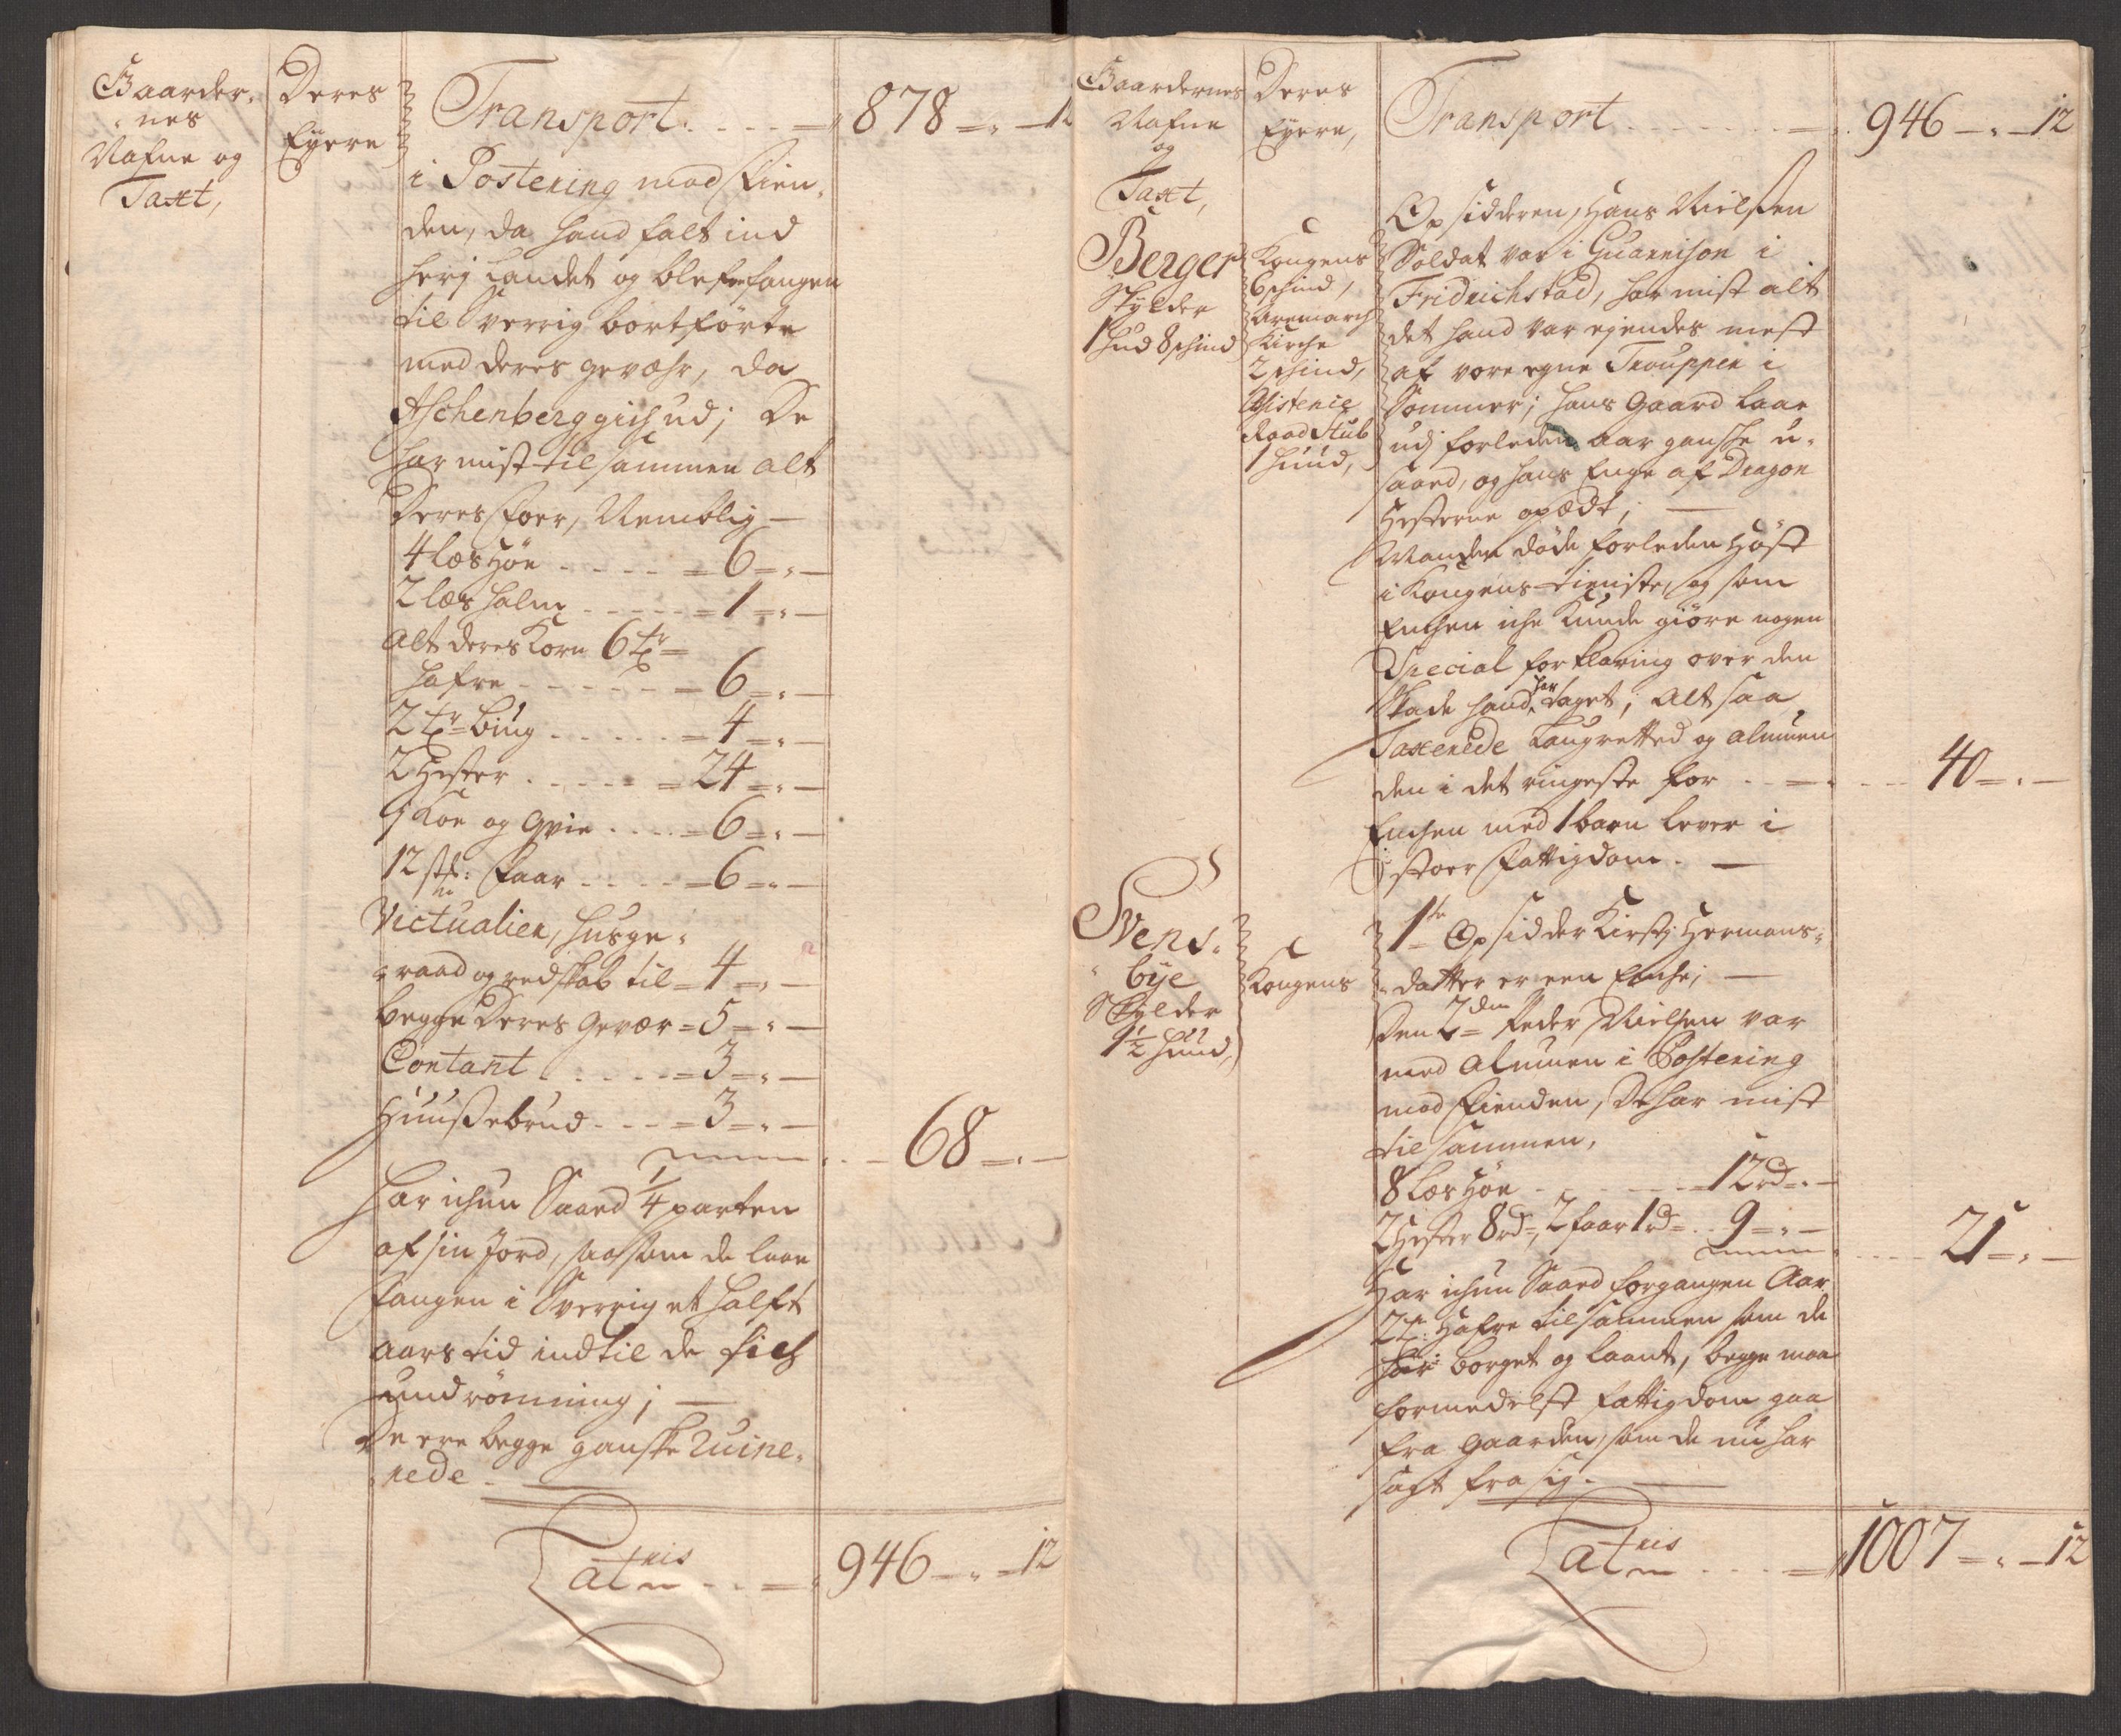 Gaarder-
nes
Nafne og
Taxt,
Deres
Eyere
Transport . . . . = 878 = „ — 12
i Postering mod fien-
den, da hand falt ind
herj Landet og blef fangen
til Sverrig bortförte
med deres gevæhr, da
Aschenberg gich ud; De
har mist tilsammen alt
Deres foer, Nemblig —
4 læs Höe . . . . . = 6 = „ —
2 læs halm . . . . . = 1 = „ —
Alt deres Korn 6 tr =
hafre . . . . . = 6 = „ —
2 tr Biug . . . . . = 4 = „ —
2 Hester . . . . . = 24 = „ —
1 Koe og Qvie . . . . = 6 = „ —
12 stk: faar . . . . = 6 = „ —
Victualier, husge-
raad og redskab til = 4 = „ —
begge Deres Gevær = 5 = „ —
Contant . . . . . = 3 = „ —
Huußebrud . . . = 3 = „ —
. . — 68 = „ —
har ichun Saaed 1/4 parten
af sin Jord, saasom de laae
fangen i Sverrig et halft
aars tid indtil de fich
undrömning; —
De ere begge ganske Ruine-
rede —
Latuis . . . = 946 = „ = 12
Gaardernes
Nafne
og
Taxt,
Deres
Eyere,
Transport . . . . . . = 946 — „ — 12
Berger
Skylder
1 hud 8 schind
Kongens
6 schind,
Aremarch
Kirche
2 schind,
Assistenie
Raad Stub
1 huud,
Opsidderen, Hans Nielsen
Soldat var i Guarnison i
Fridrichstad, har mist alt
det hand var ejendes mest
af vore egne Trouppen i
Sommer; hans Gaard laae
udj forleden aar ganske u-
saaed, og hans Enge af Dragon
Hesterne opædt; —
Manden döde forleden Höst
i Kongens tieniste, og som
Enchen iche Kunde giöre nogen
Special forklaring over den
skade hand har taget, alt saa
Taxerede Laugretted og almuen
den i det ringeste for . . = . . . 40 = „ —
Enchen med 1 barn lever i
stoer fattigdom. —
Svens-
bye
Skylder
1 1/2 huud,
Kongens
1te Opsidder Kirstj Hermans-
datter er een Enche; —
Den 2den Peder Nielsen var
med almuen i Postering
mod fienden, De har mist
tilsammen,
8 Læs Höe . . . . . = 12 rd = „ —
2 Hester 8 rd =, 2 faar 1 rd = . . 9 = „ —
. . . . 21 = „ —
Har ichun Saaed forgangen Aar
2 tr: Hafre tilsammen som de
har borget og laant, begge maa
formedelst fattigdom gaa
fra Gaarden, som de nu har
sagt fra sig. —
Latuis . . . . = 1007 = „ — 12